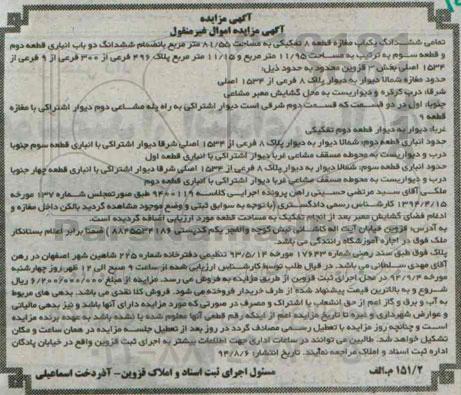 آگهی مزایده
آگهی مزایده اموال غیرمنقول
تمامی ششدانگ یکباب مغازه قطعه 8 تفکیکی به مساحت 81/55 متر مربع بانضمام ششدانگ دو باب انباری قطعه دوم
و قطعه سوم به ترتیب به مساحت 11/95 متر مربع و 11/15 متر مربع پلاک 496 فرعی از 300 فرعی از 9 فرعی از
1534 اصلی بخش 3 قزوین محدود به حدود ذیل:
حدود مغازه شمالا دیوار به دیوار پلاک 8 فرعی از 1534 اصلی
شرقا: درب کرکره و دیواریست به محل گشایش معبر مشاعی
جنوبا: اول در دو قسمت که قسمت دوم شرقی است دیوار اشتراکی به راه پله مشاعی دوم دیوار اشتراکی با مغازه
قطعه 9
غربا: دیوار به دیوار قطعه دوم تفکیکی
حدود انباری قطعه دوم: شمالا دیوار به دیوار پلاک 8 فرعی از 1534 اصلی شرقا دیوار اشتراکی با انباری قطعه سوم جنوبا
درب و دیواریست به محوطه مسقف مشاعی غربا دیوار اشتراکی با انباری قطعه اول
حدود انباری قطعه سوم: شمالا دیوار به دیوار پلاک 8 فرعی از 1534 اصلی شرقا دیوار اشتراکی با انباری قطعه چهار جنوبا
درب و دیواریست به محوطه مسقف مشاعی غربا دیوار اشتراکی با انباری قطعه دوم
ملکی آقای سید مرتضی حسینی راهن پرونده اجرایی کلاسه 9400119 طبق صورتمجلس شماره 137 مورخه
1394/4/15 کارشناس رسمی دادگستری (با توجه به سوابق ثبتی و وضع موجود مشاهده گردید بالکن داخل مغازه و
ادغام فضای گشایش معبر بعد از انجام تفکیک به مساحت قطعه مورد ارزیابی اضافه گردیده است.
به آدرس: قزوین خیابان آیت اله کاشانی نبش کوچه والفجر یکم کدپستی ) ضمنا برابر اعلام بستانکار
ملک فوق در اجاره آموزشگاه رانندگی می باشد.
پلاک فوق طی سند رهنی شماره 17643 مورخه 93/5/14 تنظیمی دفترخانه شماره 265 شاهین شهر اصفهان در رهن
آقای مهدی سلطانی می باشد. در قبال طلب توسط کارشناس ارزیابی شده از ساعت 9 صبح الی 12 ظهر روز چهارشنبه
مورخه 94/9/4 در محل اجرای ثبت قزوین از طریق مزایده به فروش می رسد. مزایده از مبلغ 6/200/000/000 ریال
شروع و به بالاترین قیمت پیشنهاد شده از طرف خریدار فروخته می شود. فروش کلا نقدی می باشد. بدهی های مربوط
به آب و برق و گاز اعم از حق انشعاب یا اشتراک و مصرف در صورتی که مورد مزایده دارای آنها باشد و نیز بدهی مالیاتی
و عوارض شهرداری و غیره تا تاریخ مزایده اعم از اینکه رقم قطعی آنها معلوم شده یا نشده باشد به عهده برنده مزایده
است و چنانچه روز مزایده با تعطیل رسمی مصادف گردد در روز بعد از تعطیل جلسه مزایده در همان ساعت و مکان
تشکیل خواهد شد. طالبین می توانند در ساعات اداری جهت اطلاعات بیشتر به اجرای ثبت قزوین واقع در خیابان پادگان
اداره ثبت اسناد و املاک مراجعه نمایند. تاریخ انتشار: 94/8/6
151/2 م.الف
مسئول اجرای ثبت اسناد و املاک قزوین- آذردخت اسماعیلی